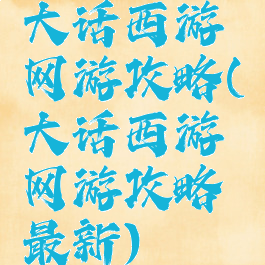 大话西游
网游攻略(
大话西游
网游攻略
最新)